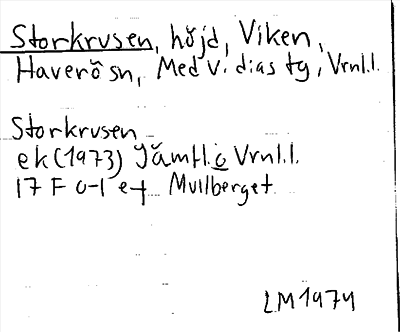 Storkrusen, höjd, Viken,
Haverö sn, Medv. dias tg, Vrnl.l.
Storkrusen
ek (1973) Jämtl. o Vrnl.l.
17 F o-1 e-f Mullberget
LM 1974